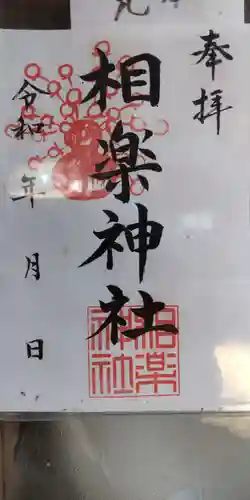 奉拝
相楽神社
令和 年 月 日
相楽神社